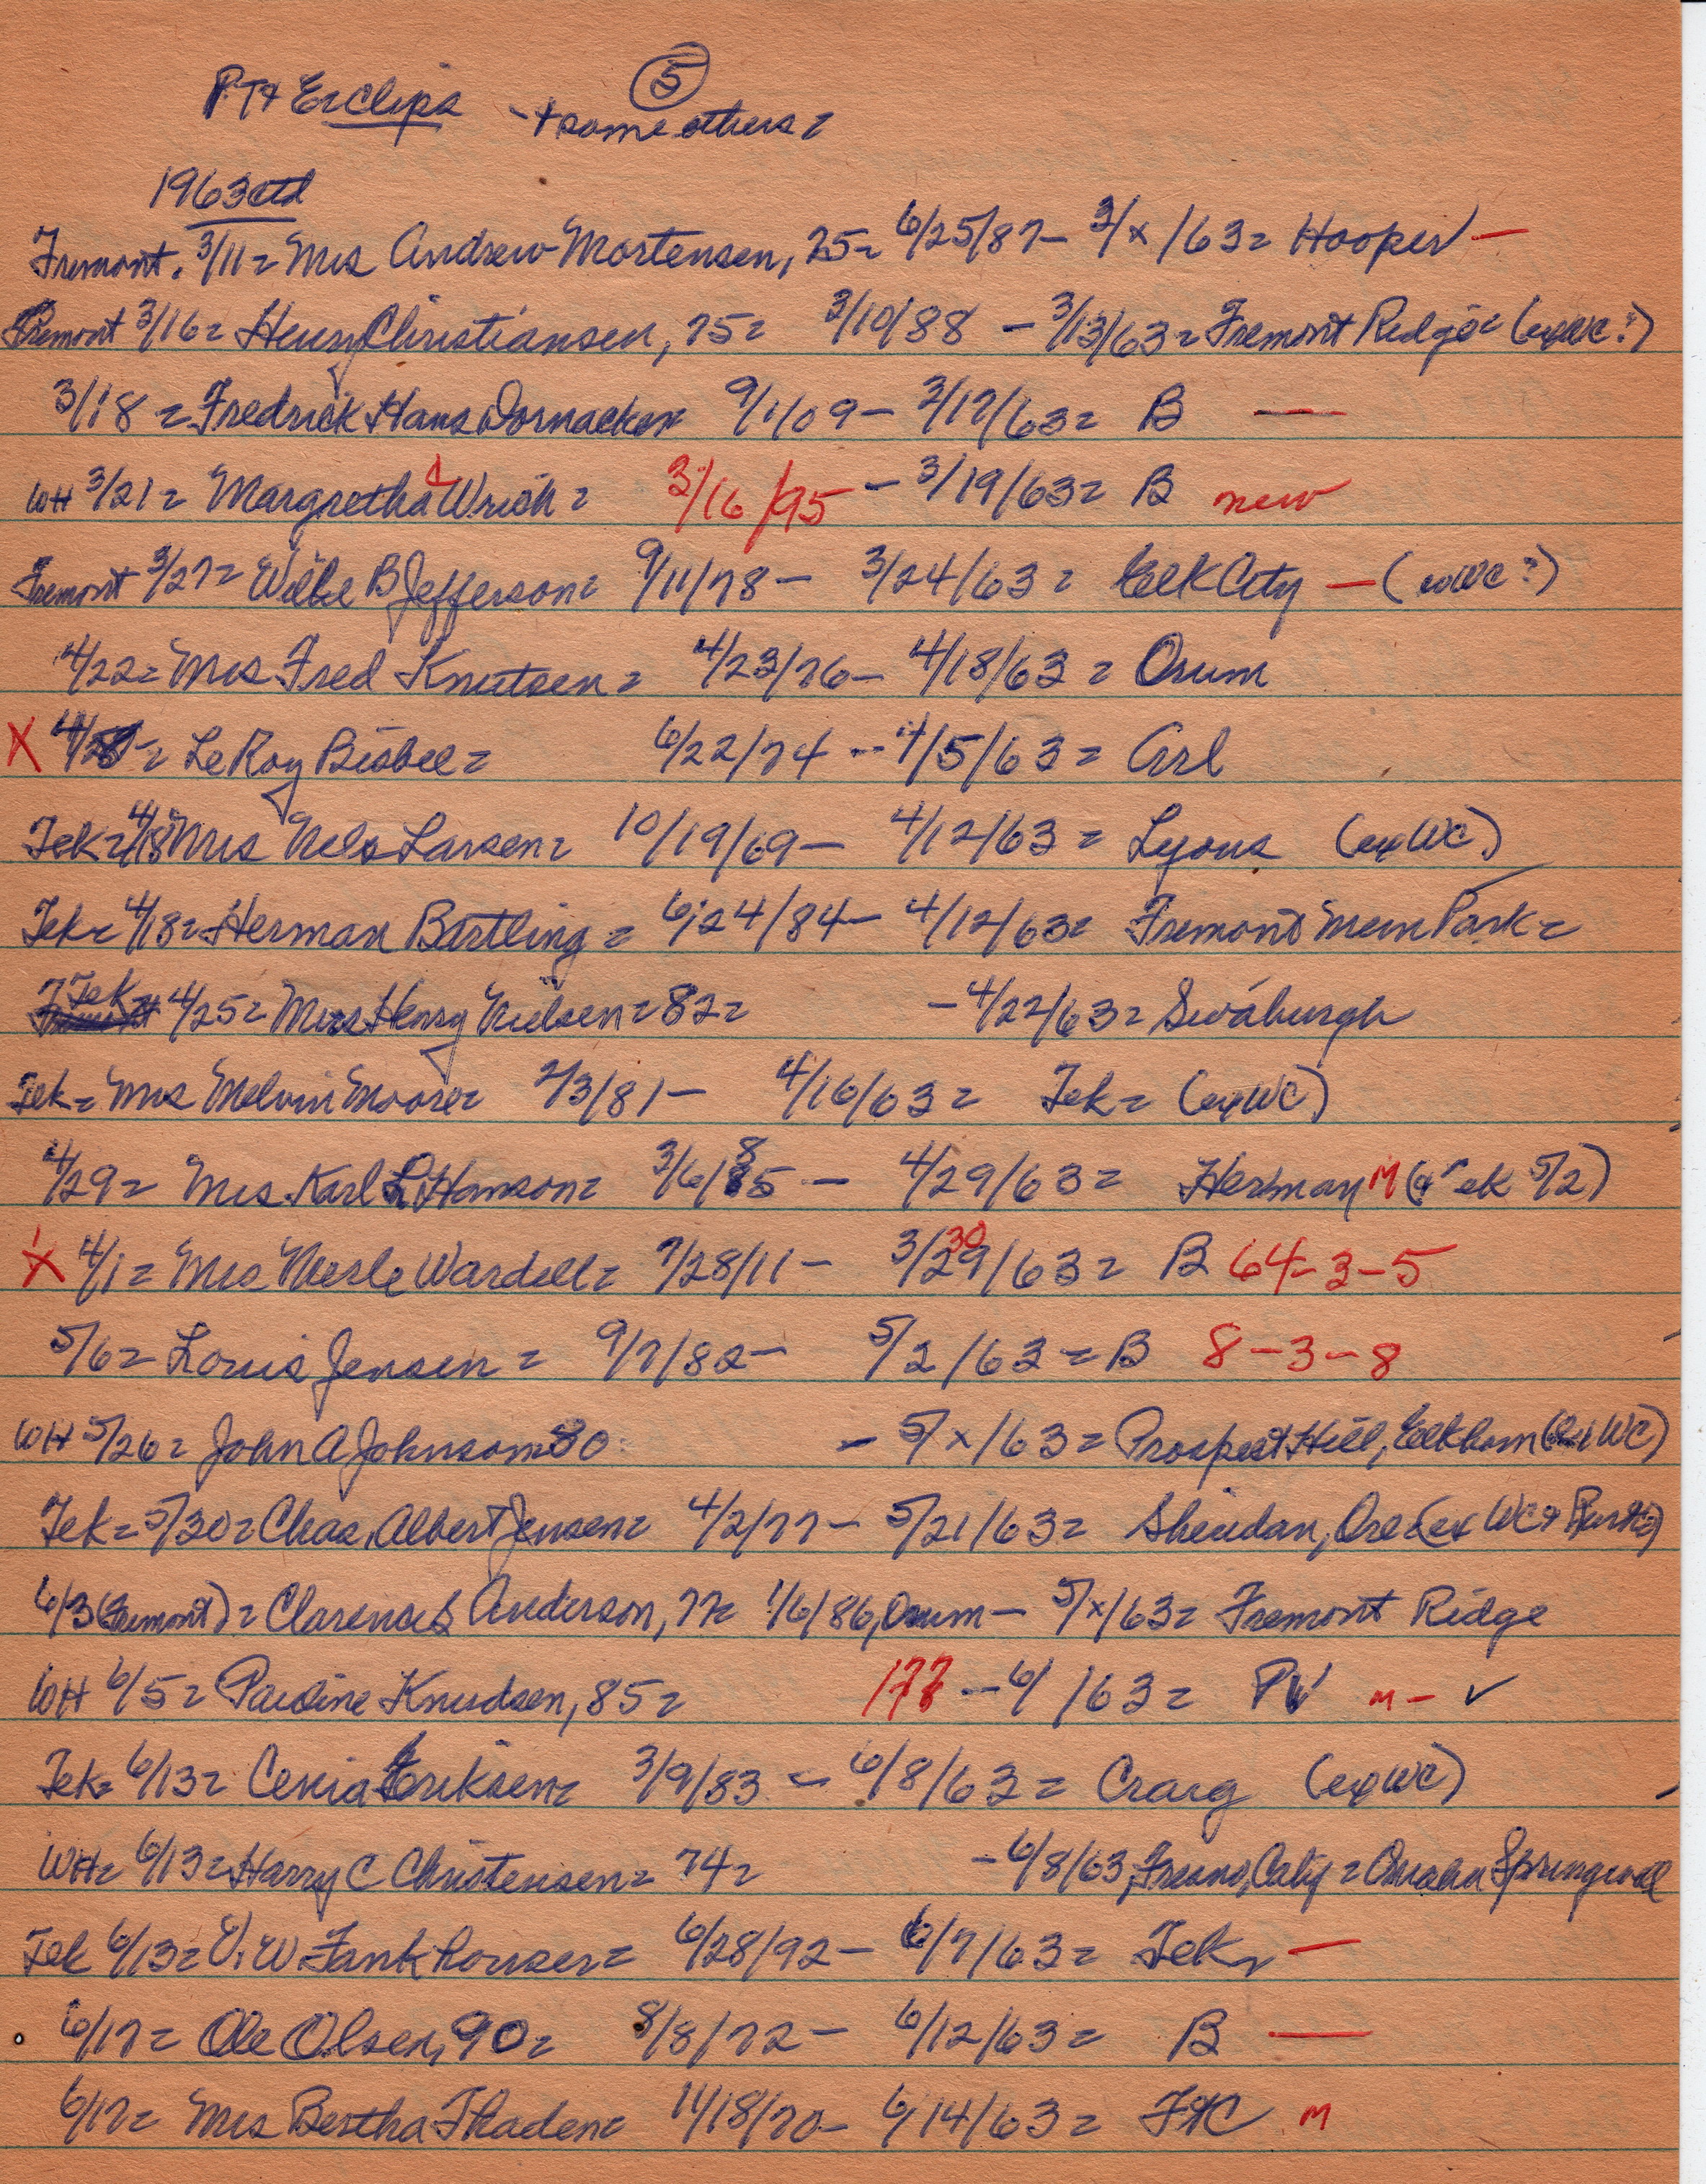 5
PT & Er Clips - + some others =
1963 ctd
Fremont. 3/11 = Mrs Andrew Mortensen, 75 = 6/25/87 - 3/x/63 = Hooper —
Fremont 3/16 = Henry Christiansen, 75 = 3/10/88 - 3/13/63 = Fremont Ridge = (exWC?)
3/18 = Fredrick Hans Dornacker 9/1/09 - 3/17/63 = B —
WH 3/21 = Margretha Wrich = 3/16/95 - 3/19/63 = B new
Fremont 3/27 = B Jefferson = 9/11/78 - 3/24/63 = Elk City — (exWC?)
4/22 = Mrs Fred Knutsen = 4/23/76 - 4/18/63 = Orum
X = LeRoy Bisbee = 6/22/74 - 4/5/63 = Arl
Tek = 4/18 Mrs Nels Larsen = 10/19/69 - 4/12/63 = Lyons (exWC)
Tek = 4/18 = Herman Bartling = 6/24/84 - 4/12/63 = Fremont Mem Park =
Tek 4/25 = Mrs Henry Nielsen = 82 = - 4/22/63 = Swaburgh
Tek = Mrs Melvin Moore = 2/3/81 - 4/16/63 = Tek = (exWC)
4/29 = Mrs Karl L Hanson = 3/6/85 - 4/29/63 = Herman M (& Tek 5/2)
X 4/1 = Mrs Merle Wardell = 7/28/11 - 3/29/63 = B 64-3-5
30
5/6 = Louis Jensen = 9/7/82 - 5/2/63 = B 8-3-8
WH 5/26 = John A Johnson 80 - 5/x/63 = Prospect Hill, Elkhorn (ex WC)
Tek = 5/30 = Chas. Albert Jensen = 4/2/77 - 5/21/63 = Sheridan, Ore (ex WC &
6/3 (Fremont) = Clarence S Anderson, 77 = 1/6/86, Orum - 5/x/63 = Fremont Ridge
WH 6/5 = Pauline Knudsen, 85 = 177 - 6/ /63 = PV M - ✓
Tek = 6/13 = Cenia Eriksen = 3/9/83 - 6/8/63 = Craig (exWC)
WH = 6/13 = Harry C Christensen = 74 = - 6/8/63, Fresno, Calif = Omaha Springwell
Tek 6/13 = V. W Fankhouser = 6/28/92 - 6/7/63 = Tek —
6/17 = Ole Olsen, 90 = 8/8/72 - 6/12/63 = B —
6/17 = Mrs Bertha Thaden = 11/18/70 - 6/14/63 = FtC M